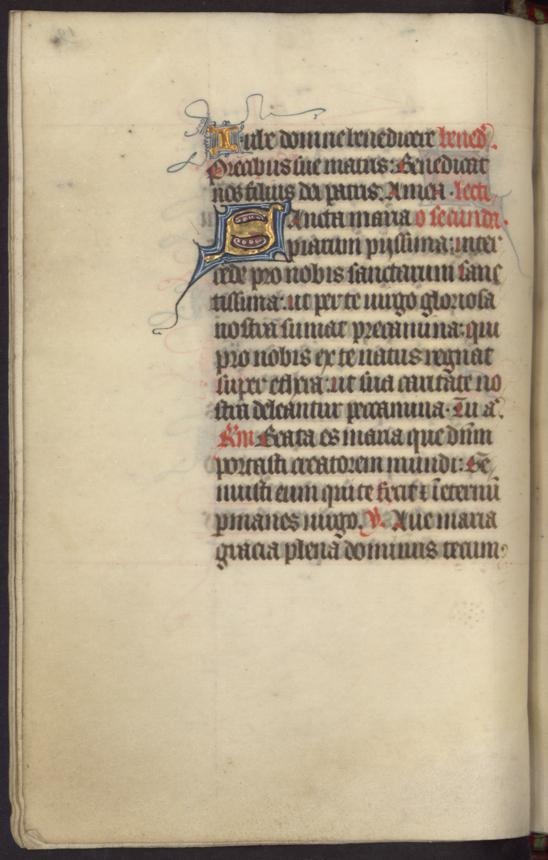 Iube domine benedicere bened̄.
Precibus sue matris: Benedicat
nos filius dei patris. Amen. lecti
Sancta maria o secunda.
piarum pijssima: inter
cede pro nobis sanctarum sanc
tissima: ut per te uirgo gloriosa
nostra sumat precamina: qui
pro nobis ex te natus regnat
super ethera: ut sua caritate no
stra deleantur peccamina. Tu a͛.
R̄m Beata es maria que dn̄m
portasti creatorem mundi: Ge
nuisti eum qui te fecit ⁊ īeternū
ꝑmanes uirgo. V̄. Aue maria
gracia plena dominus tecum: